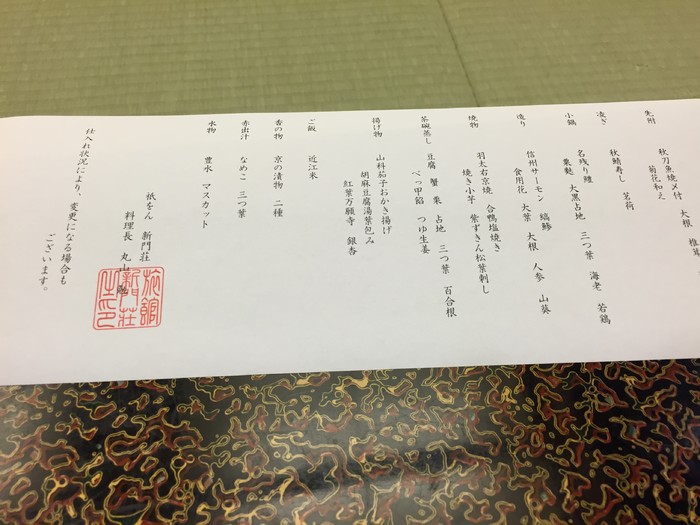 先附
秋刀魚焼〆付 大根 椎茸
菊花和え
凌ぎ
秋鯖寿し 茗荷
小鍋
名残り鱧 大黒占地 三つ葉 海老 若鶏
粟麩
造り
信州サーモン 縞鯵
食用花 大葉 大根 人参 山葵
焼物
羽太右京焼 合鴨塩焼き
焼き小芋 紫ずきん松葉刺し
茶碗蒸し
豆腐 蟹 栗 占地 三つ葉 百合根
べっ甲餡 つゆ生姜
揚げ物
山科茄子おかき揚げ
胡麻豆腐湯葉包み
紅葉万願寺 銀杏
ご飯
近江米
香の物
京の漬物 二種
赤出汁
なめこ 三つ葉
水物
豊水 マスカット
祇をん 新門荘
料理長 丸山 融
旅館新門荘之印
仕入れ状況により、変更になる場合も
ございます。